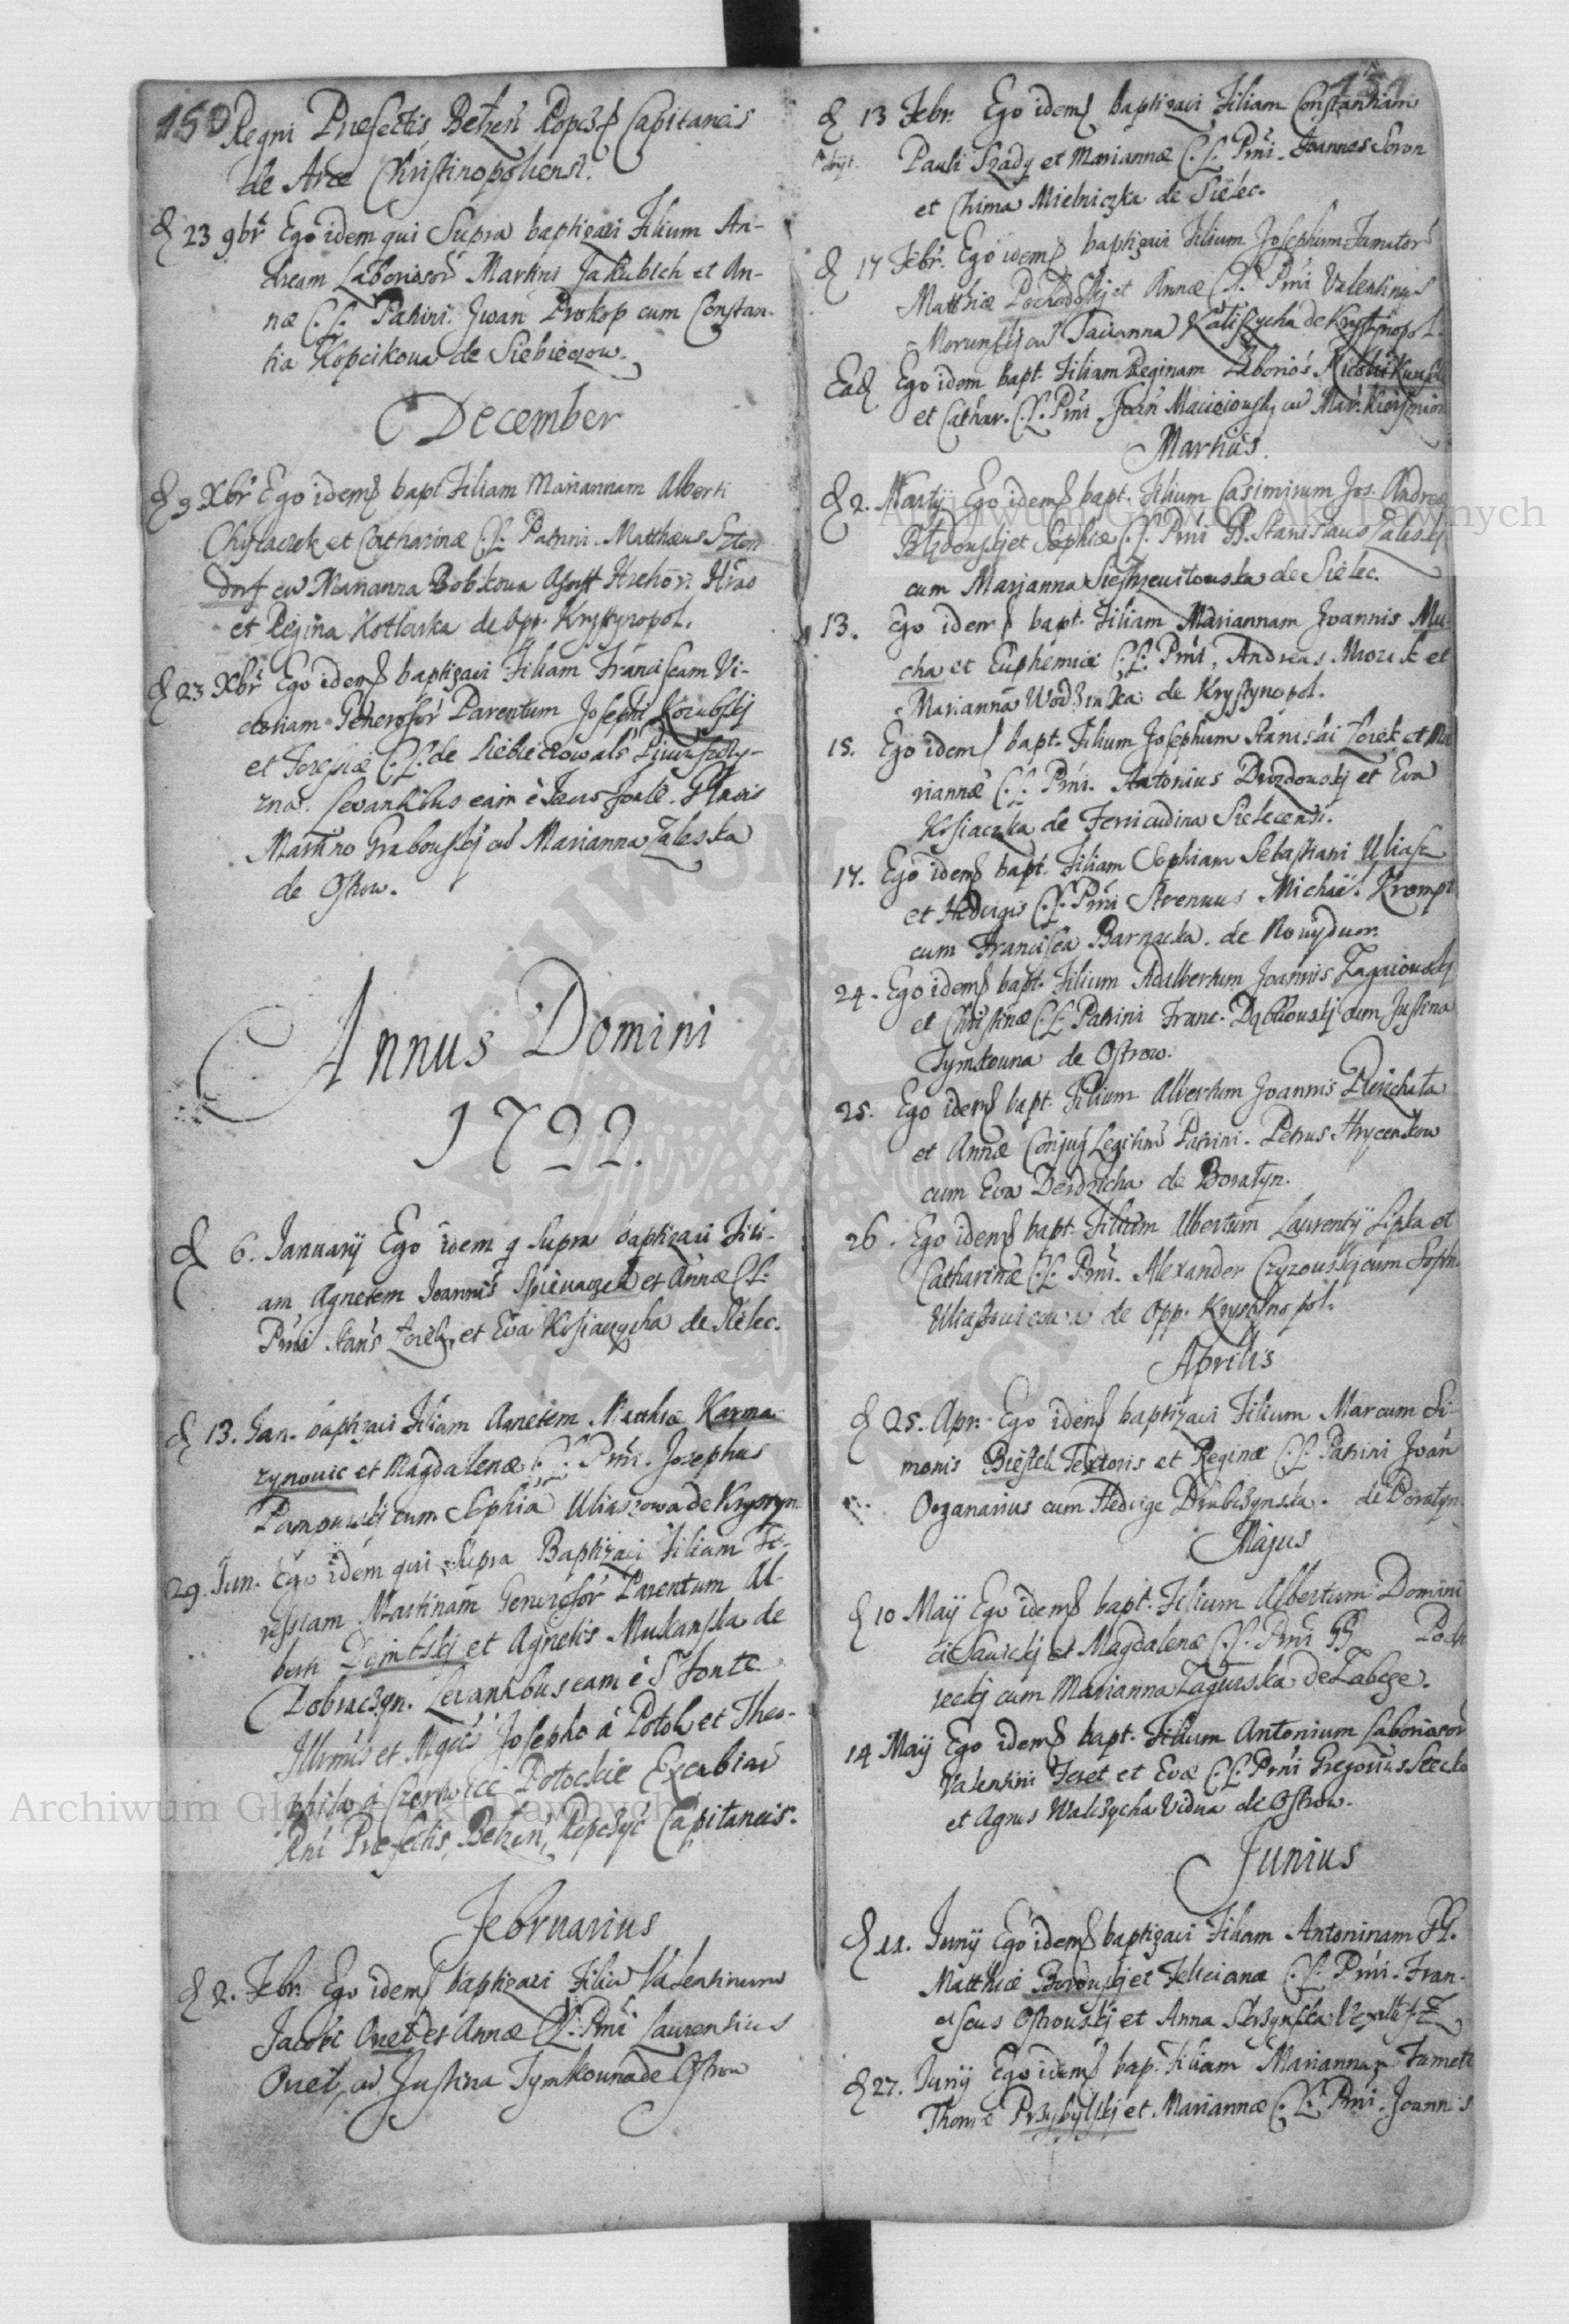 150 Regni Præfectis Betzen Ropcz Capitaneis
de Arce Christinopoliensi.
d 23 9br Ego idem qui Supra baptizavi Filium An-
dream Laboriosor Martini Jakubich et An-
næ C. L. Patrini. Iwan Prokop cum Constan-
tia Kopcikowa de Siebieczow.
December
d 9 Xbr Ego idem bapt Filiam Mariannam Alberti
Chyłaczek et Catharinæ C. L. Patrini. Matthæus Szten
dorf cu Marianna Bobkowa
et Regina Kotlarka de opp. Krystynopol.
d 23 Xbr Ego idem baptizavi Filiam Franciscam Vi-
ctoriam Generosor Parentum Josephi Kozubskj
et Teressiæ C. L. de Siebieczow als
zna. Levantibus eam è Sacro fonte.
Martino Grabowskj cu Marianna Zaleska
de Ostrow.
Annus Domini
1722.
d 6. Januarij Ego idem q Supra baptizavi Fili-
am Agnetem Joannis Spiewaczek et Annæ C. L.
Pmi Stans et Eva Kosiaczycha de Sielec.
d 13. Jan. baptizavi Filiam Agnetem Matthiæ Karma
zynowic et Magdalenæ C. L. Pmi. Josephus
cum Sophia Uliaszowa de Krystyn
29. Jan. Ego idem qui Supra Baptizavi Filiam Te-
ressiam Martinam Generosor Parentum Al-
berti Dembskj et Agnetis Mukanska de
Dobraczyn. Levantibus eam è S fonte
Illrmis et Mgcis Josepho à Potok et Theo-
philo à Czerwice Potockie Excubiar
Rni Præfectis, Betzen, Ropczyc Capitaneis.
Februarius
d 2. Febr. Ego idem baptizavi Filiu Valentinum
Jacobi Onet et Annæ C. L. Pmi Laurentius
Onet, cu Justina Tymkowna de Ostrow
d 13 Febr. Ego idem baptizavi Filiam Constantiam
Pauli Szady et Mariannæ C. L. Pmi. Joannes Soron
et Chima Mielniczka de Sielec.
d 17 Febr. Ego idem baptizavi Filium Josephum Famator
Matthiæ et Annæ C. L. Pmi Valentinus
cu Tacianna de Krystynopol.
Ead Ego idem bapt. Filiam Reginam Laborios
et Cathar. C. L. Pmi. Joan Macieiowskj cu Mar.
Martius.
d 2. Martij Ego idem bapt. Filium Casimirum Jos. Andreæ
et Sophiæ C. L. Pmi G. Stanislaus Zaleskj
cum Marianna de Sielec.
13. Ego idem bapt. Filiam Mariannam Joannis Mu-
cha et Euphemiæ C. L. Pmi, Andreas Mrozek et
Marianna Wodzinska de Krystynopol.
15. Ego idem bapt. Filium Josephum Stanislai Zorek et Ma
riannæ C. L. Pmi. Antonius Drozdowskj et Eva
Kosiaczka de Fernicudina Sielecensi.
17. Ego idem bapt. Filiam Sophiam Sebastiani Uliasz
et Hedvigis C. L. Pmi Strenuus Michael Krompl
cum Francisca Barnacka. de Nowydwor.
24. Ego idem bapt. Filium Adalbertum Joannis Zagaiowskj
et Christinæ C. L. Patrini Franc. Dąbkowskj cum Justina
Tymkowna de Ostrow.
25. Ego idem bapt. Filium Albertum Joannis
et Annæ Conjug Legitimor Patrini. Petrus Hrycenkow
cum Eva Derdzicha de Boratyn.
26. Ego idem bapt. Filium Albertum Laurentij Lipka et
Catharinæ C. L. Pmi. Alexander Czyzowskj cum Soph.
Uliaszowicowa de Opp. Krystinopol.
Aprilis
d 25. Apr. Ego idem baptizavi Filium Marcum Si-
monis Textoris et Reginæ C. L. Patrini Joan
Organarius cum Hedvige Drabczynska. de Boratyn
Majus
d 10 Maij Ego idem bapt. Filium Albertum Domini
ci Sawickj et Magdalenæ C. L. Pmi GG Podh
reckj cum Marianna Zagurska de Zabcze.
14 Maij Ego idem bapt. Filium Antonium Laboriosor
Valentini Feret et Evæ C. L. Pmi Gregorius Stecko
et Agnes Walczycha Vidua de Ostrow.
Junius
d 11. Junij Ego idem baptizavi Filiam Antoninam GG.
Matthiæ Borowskj et Felicianæ C. L. Pmi. Fran-
ciscus Ostrowskj et Anna
d 27. Junij Ego idem bap. Filiam Mariannam Famat
Thomæ Przybylskj et Mariannæ C. L. Pmi. Joannis
Archiwum Główne Akt Dawnych
Archiwum Główne Akt Dawnych